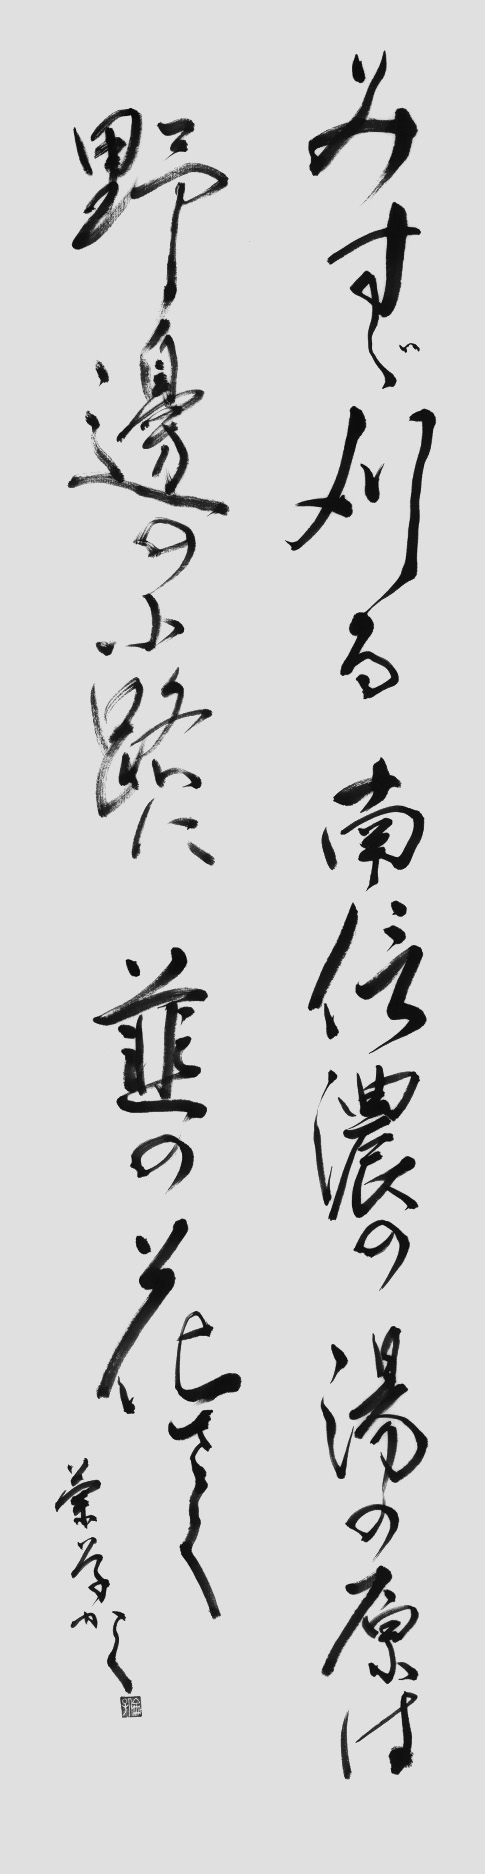 みすゞ刈る南信濃の湯の原は
野邊の小路に韮の花さく
かく